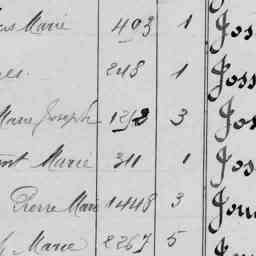 Marie 493 1 Jos
es. 248 1 Joss
Marie Joseph 1253 3 Jos
ent Marie 311 1 Jos
Pierre Marie 1448 3 Jou
Marie 2267 5